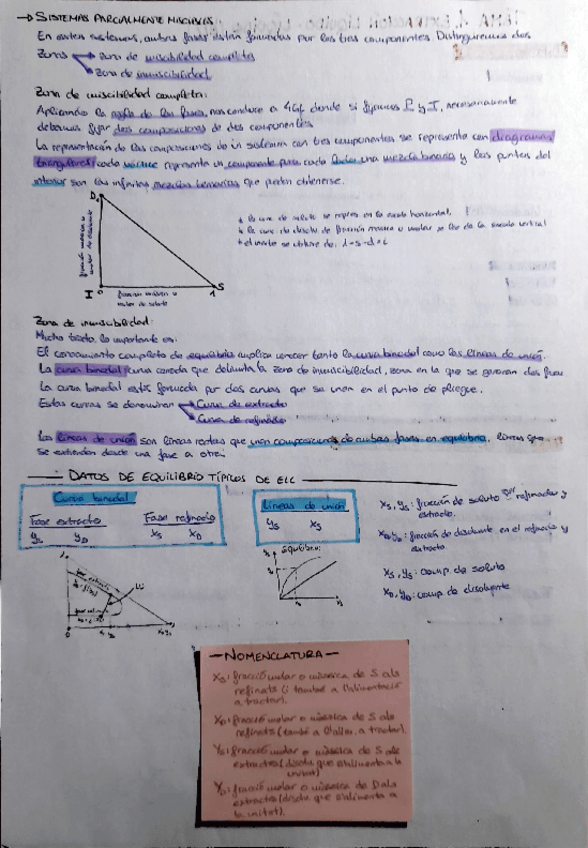 → SISTEMAS PARCIALMENTE MISCIBLES
En estos sistemas, ambas fases están formadas por los tres componentes. Distinguiremos dos
zonas
Zona de miscibilidad completa
Zona de inmiscibilidad
Zona de miscibilidad completa:
Aplicando la regla de las fases, nos conduce a 4GL donde si fijamos P y T, necesariamente
debemos fijar dos composiciones de dos componentes.
La representación de las composiciones de un sistema con tres componentes se representa con diagramas
triangulares, cada vértice representa un componente puro, cada lado una mezcla binaria y los puntos del
interior son las infinitas mezclas ternarias que pueden obtenerse.
D
I
S
1
0
fracción másica o molar de disolvente
fracción másica o
molar de soluto
horizontal.
vertical
Zona de inmiscibilidad:
Mucho texto, lo importante es:
El conocimiento completo de equilibrio implica conocer tanto la curva binodal como las líneas de unión.
La curva binodal: curva cerrada que delimita la zona de inmiscibilidad, zona en la que se generan dos fases
La curva binodal está formada por dos curvas que se unen en el punto de pliegue.
Estas curvas se denominan
Curva de extracto
Curva de refinado
Las líneas de unión son líneas rectas que unen composiciones de ambas fases en equilibrio, líneas que
se extienden desde una fase a otra.
DATOS DE EQUILIBRIO TÍPICOS DE ELL
Curva binodal
Fase extracto Fase refinado
ys yD xS xD
Líneas de unión
ys xs
xs, ys: fracción de soluto en refinado y
extracto.
xD, yD: fracción de disolvente en el refinado y
extracto
xs, ys: comp. de soluto
xD, yD: comp. de disolvente
Equilibrio:
LU
— NOMENCLATURA —
Xs: fracció molar o màssica de S als
refinats (i també a l'alimentació
a tractar).
XD: fracció molar o màssica de S als
refinats (també a l'alim. a tractar).
Ys: fracció molar o màssica de S als
extractes (disolv. que s'alimenta a la
unitat)
YD: fracció molar o màssica de D als
extractes (disolv. que s'alimenta a
la unitat).